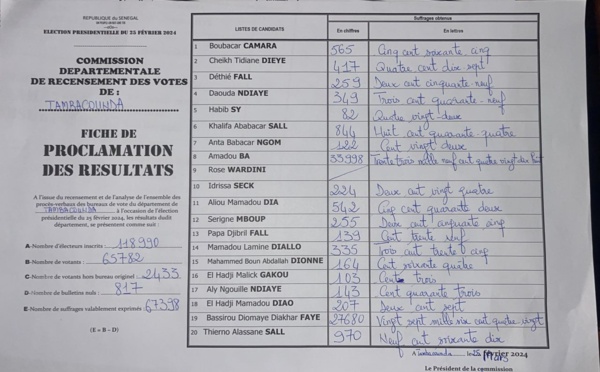 REPUBLIQUE DU SENEGAL
ELECTION PRESIDENTIELLE DU 25 FÉVRIER 2024
COMMISSION
DEPARTEMENTALE
DE RECENSEMENT DES VOTES
DE :
TAMBACOUNDA
FICHE DE
PROCLAMATION
DES RESULTATS
A l'issue du recensement et de l'analyse de l'ensemble des
procès-verbaux des bureaux de vote du département de
TAMBACOUNDA à l'occasion de l'élection
présidentielle du 25 février 2024, les résultats dudit
département, se présentent comme suit :
A-Nombre d'électeurs inscrits : 118990
B-Nombre de votants : 65782
C-Nombre de votants hors bureau originel : 2433
D-Nombre de bulletins nuls : 817
E-Nombre de suffrages valablement exprimés : 67398
(E = B – D)
LISTES DE CANDIDATS Suffrages obtenus
En chiffres En lettres
1 Boubacar CAMARA 565 Cinq cent soixante cinq
2 Cheikh Tidiane DIEYE 417 Quatre cent dix sept
3 Déthié FALL 259 Deux cent cinquante-neuf
4 Daouda NDIAYE 349 Trois cent quarante-neuf
5 Habib SY 82 Quatre vingt-deux
6 Khalifa Ababacar SALL 844 Huit cent quarante-quatre
7 Anta Babacar NGOM 122 Cent vingt deux
8 Amadou BA 33998 Trente trois mille neuf cent quatre vingt dix huit
9 Rose WARDINI
10 Idrissa SECK 224 Deux cent vingt quatre
11 Aliou Mamadou DIA 542 Cinq cent quarante deux
12 Serigne MBOUP 255 Deux cent cinquante cinq
13 Papa Djibril FALL 139 Cent trente neuf
14 Mamadou Lamine DIALLO 335 Trois cent trente cinq
15 Mahammed Boun Abdallah DIONNE 164 Cent soixante quatre
16 El Hadji Malick GAKOU 103 Cent trois
17 Aly Ngouille NDIAYE 143 Cent quarante trois
18 El Hadji Mamadou DIAO 207 Deux cent sept
19 Bassirou Diomaye Diakhar FAYE 27680 Vingt sept mille six cent quatre vingt
20 Thierno Alassane SALL 970 Neuf cent soixante dix
février 2024
Mars
Le Président de la commission